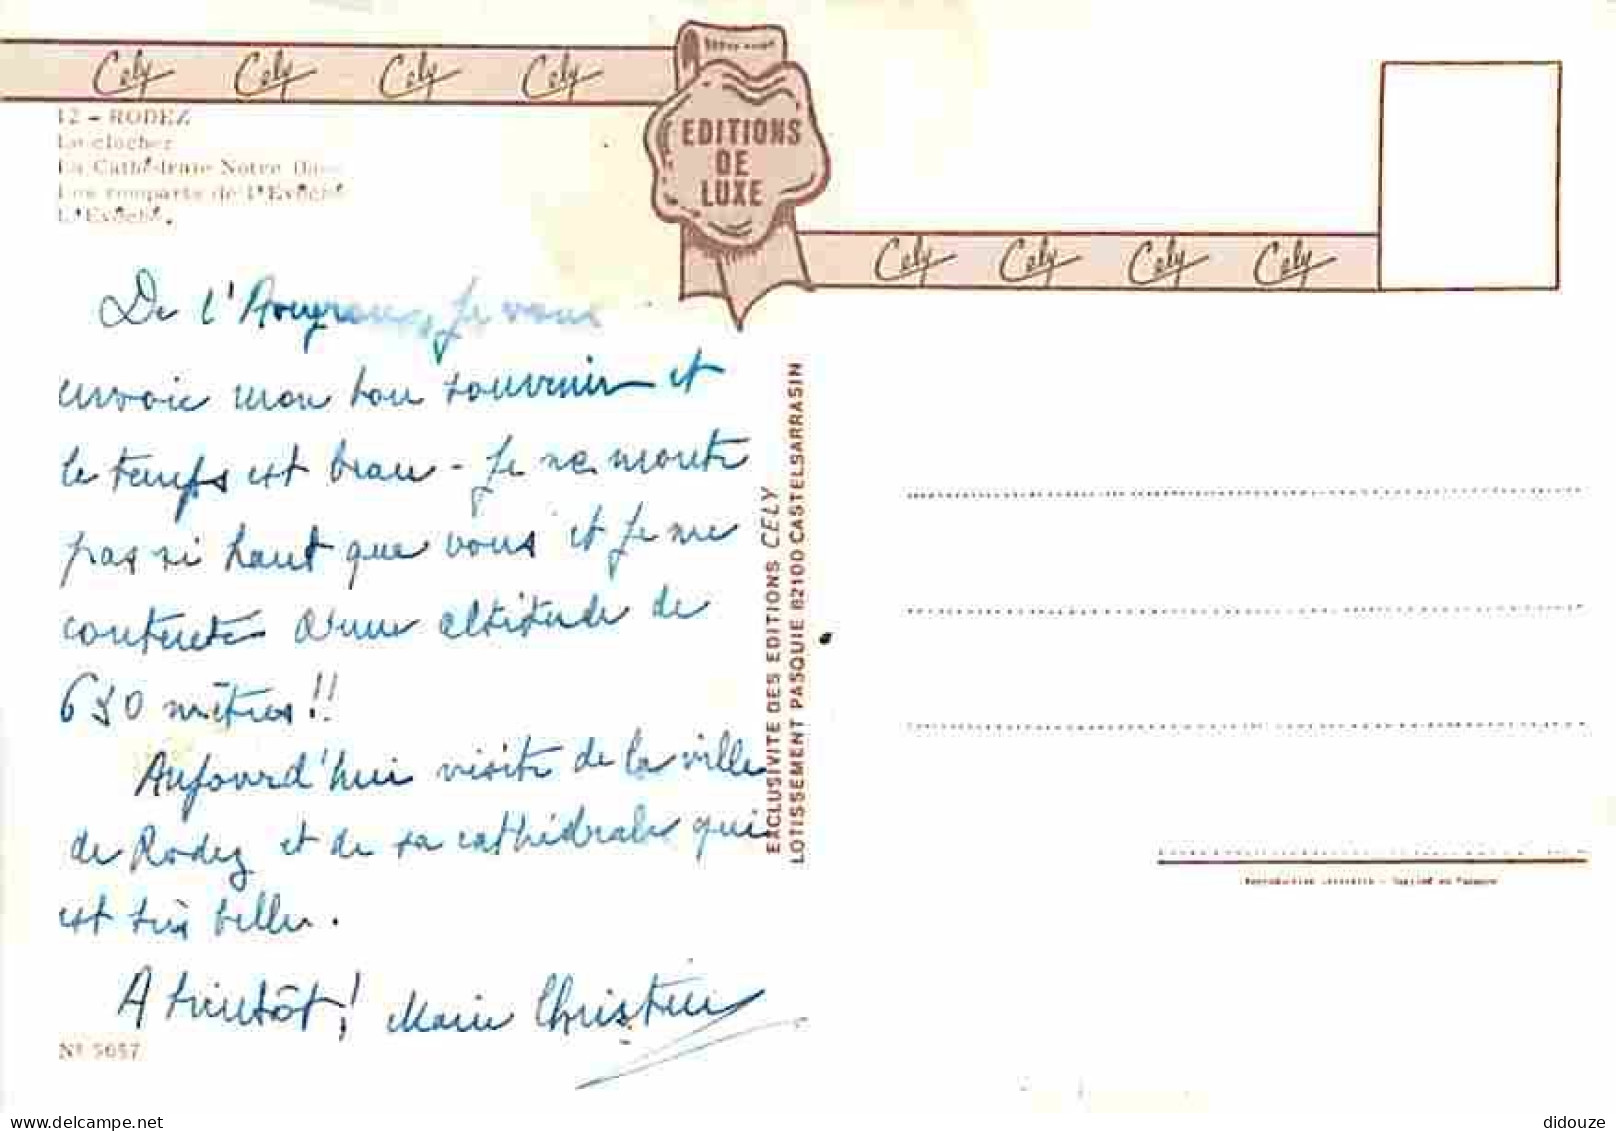 Cely Cely Cely Cely
12 - RODEZ
Le clocher
La Cathédrale Notre Dame
Les remparts de l'Evêché
L'Evêché.
EDITIONS
DE
LUXE
Cely Cely Cely Cely
De l'Aveyron, je vous
envoie mon bon souvenir et
le temps est beau - Je ne monte
pas si haut que vous et je me
contente d'une altitude de
630 mètres!!
Aujourd'hui visite de la ville
de Rodez et de sa cathédrale qui
est très belle.
A bientôt! Marie Christine
N° 5657
EXCLUSIVITE DES EDITIONS CELY
LOTISSEMENT PASQUIE 82100 CASTELSARRASIN
Reproduction interdite -
didouze